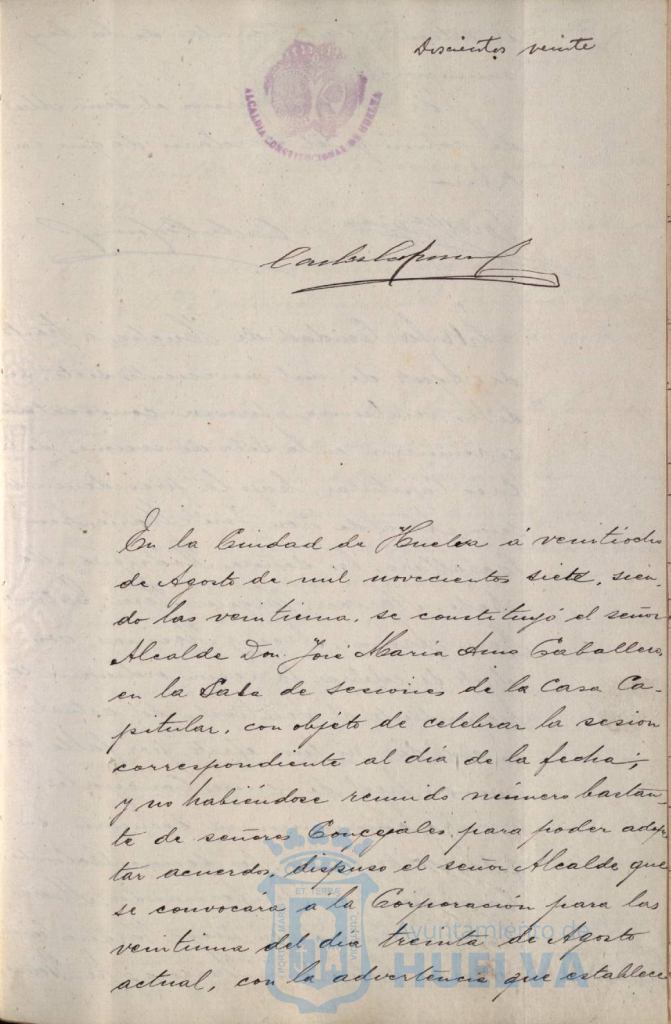 Doscientos veinte
ALCALDIA CONSTITUCIONAL DE HUELVA
En la Ciudad de Huelva á veintiocho
de Agosto de mil novecientos siete, sien-
do las veintiuna, se constituyó el señor
Alcalde Don José María Amo Caballero,
en la Sala de sesiones de la Casa Ca-
pitular, con objeto de celebrar la sesion
correspondiente al dia de la fecha;
y no habiéndose reunido número bastan-
te de señores Concejales para poder adop-
tar acuerdos, dispuso el señor Alcalde que
se convocára á la Corporación para las
veintiuna del dia treinta de Agosto
actual, con la advertencia que establece
ET TERRÆ
PORTUS MARIS
CUSTODIA
Ayuntamiento de
HUELVA